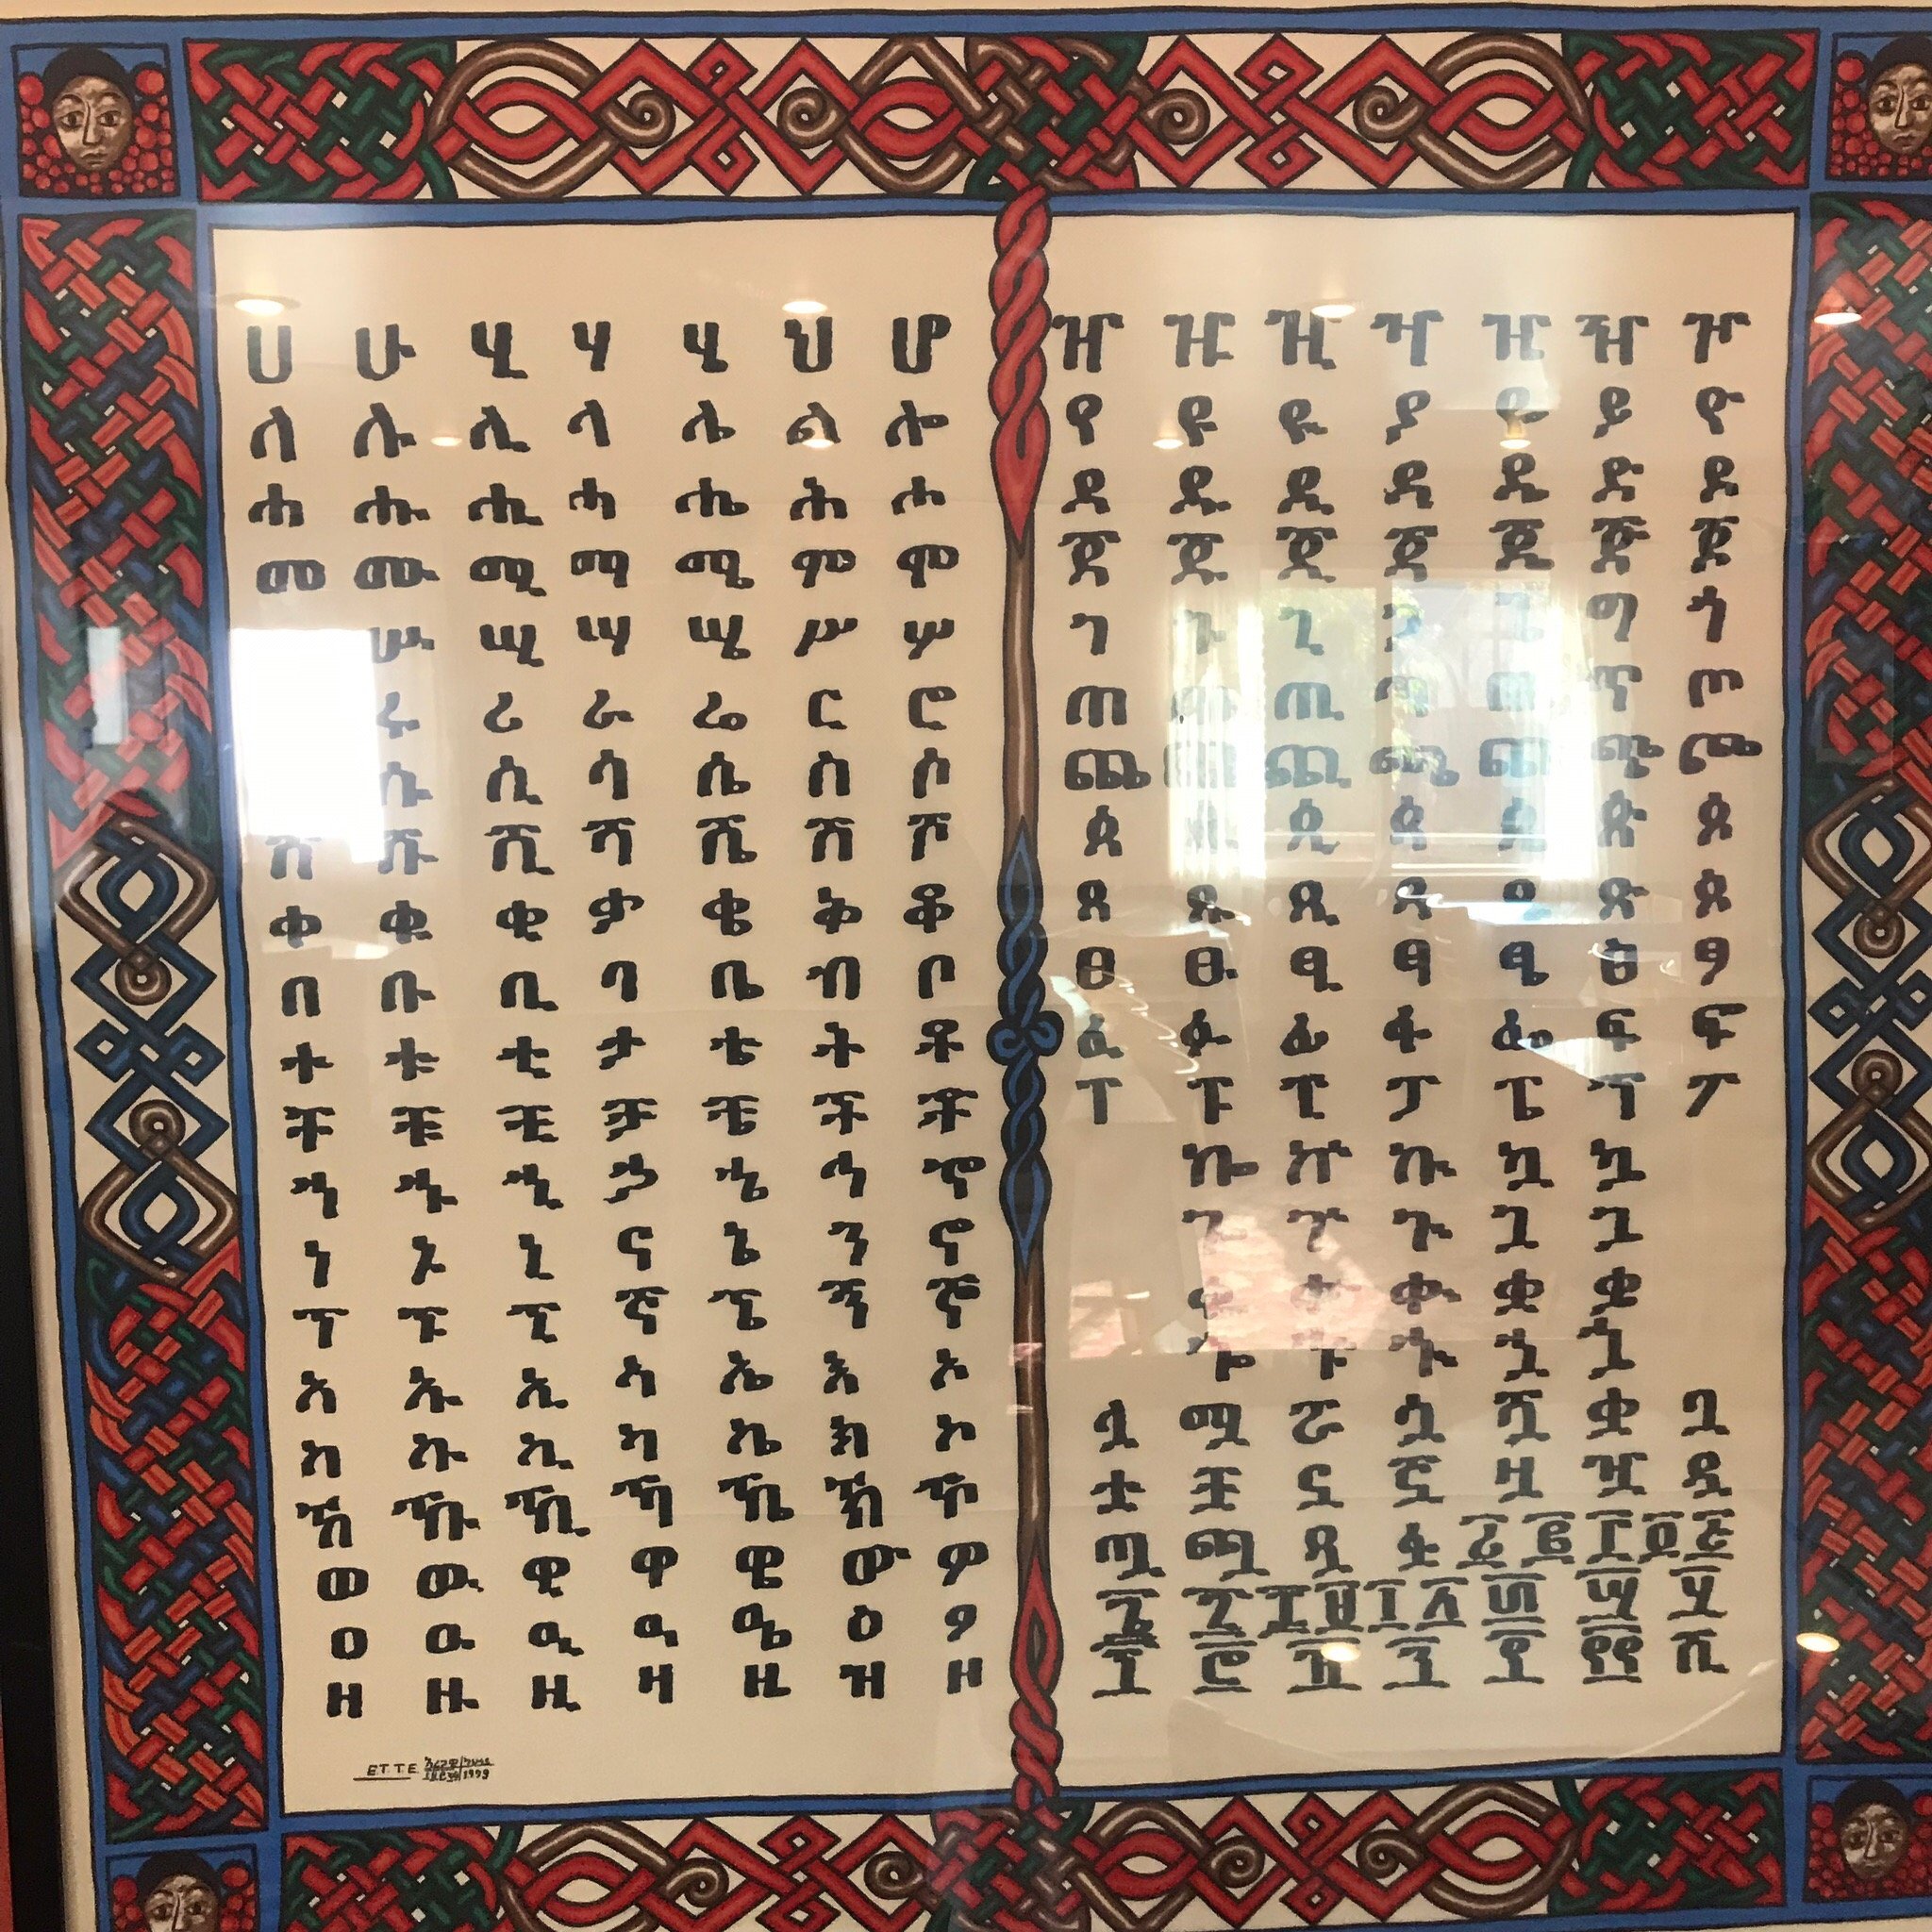 ሀ ሁ ሂ ሃ ሄ ህ ሆ
ለ ሉ ሊ ላ ሌ ል ሎ
ሐ ሑ ሒ ሓ ሔ ሕ ሖ
መ ሙ ሚ ማ ሜ ም ሞ
ሡ ሢ ሣ ሤ ሥ ሦ
ሩ ሪ ራ ሬ ር ሮ
ሱ ሲ ሳ ሴ ስ ሶ
ሸ ሹ ሺ ሻ ሼ ሽ ሾ
ቀ ቁ ቂ ቃ ቄ ቅ ቆ
በ ቡ ቢ ባ ቤ ብ ቦ
ተ ቱ ቲ ታ ቴ ት ቶ
ቸ ቹ ቺ ቻ ቼ ች ቾ
ኀ ኁ ኂ ኃ ኄ ኅ ኆ
ነ ኑ ኒ ና ኔ ን ኖ
ኘ ኙ ኚ ኛ ኜ ኝ ኞ
አ ኡ ኢ ኣ ኤ እ ኦ
ከ ኩ ኪ ካ ኬ ክ ኮ
ኸ ኹ ኺ ኻ ኼ ኽ ኾ
ወ ዉ ዊ ዋ ዌ ው ዎ
ዐ ዑ ዒ ዓ ዔ ዕ ዖ
ዘ ዙ ዚ ዛ ዜ ዝ ዞ
E.T.T.E.
ዠ ዡ ዢ ዣ ዤ ዥ ዦ
የ ዩ ዪ ያ ዬ ይ ዮ
ደ ዱ ዲ ዳ ዴ ድ ዶ
ጀ ጁ ጂ ጃ ጄ ጅ ጆ
ገ ጉ ጊ ጋ ጌ ግ ጎ
ጠ ጡ ጢ ጣ ጤ ጥ ጦ
ጨ ጩ ጪ ጫ ጬ ጭ ጮ
ጰ ጱ ጲ ጳ ጴ ጵ ጶ
ጸ ጹ ጺ ጻ ጼ ጽ ጾ
ፀ ፁ ፂ ፃ ፄ ፅ ፆ
ፈ ፉ ፊ ፋ ፌ ፍ ፎ
ፐ ፑ ፒ ፓ ፔ ፕ ፖ
ኴ ኰ ኵ ኳ ኳ
ጔ ጐ ጕ ጓ ጓ
ቌ ቈ ቍ ቋ ቋ
ኌ ኈ ኍ ኋ ኋ
ሏ ሟ ሯ ሷ ሿ ቋ ቧ
ቷ ቿ ኗ ኟ ዟ ዧ ዷ
ጧ ጯ ጿ ፏ ፩ ፪ ፫ ፬ ፭
፮ ፯ ፰ ፱ ፲ ፳ ፴ ፵
፶ ፷ ፸ ፹ ፺ ፻ ፼ ሺ